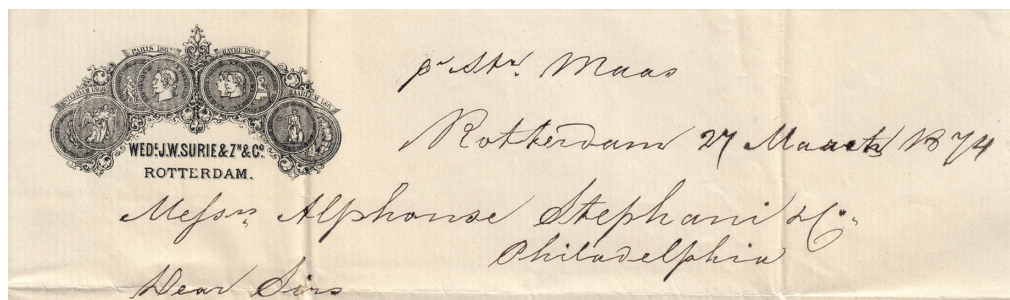 PARIS 1867 HAVRE 1868
AMSTERDAM 1869 HAARLEM 1861
WED.E J.W. SURIE & Z.N & C.O
ROTTERDAM.
pr Str. Maas
Rotterdam 27 Maart 1874
Messrs. Alphonse Stephani & Co.
Philadelphia
Dear Sirs